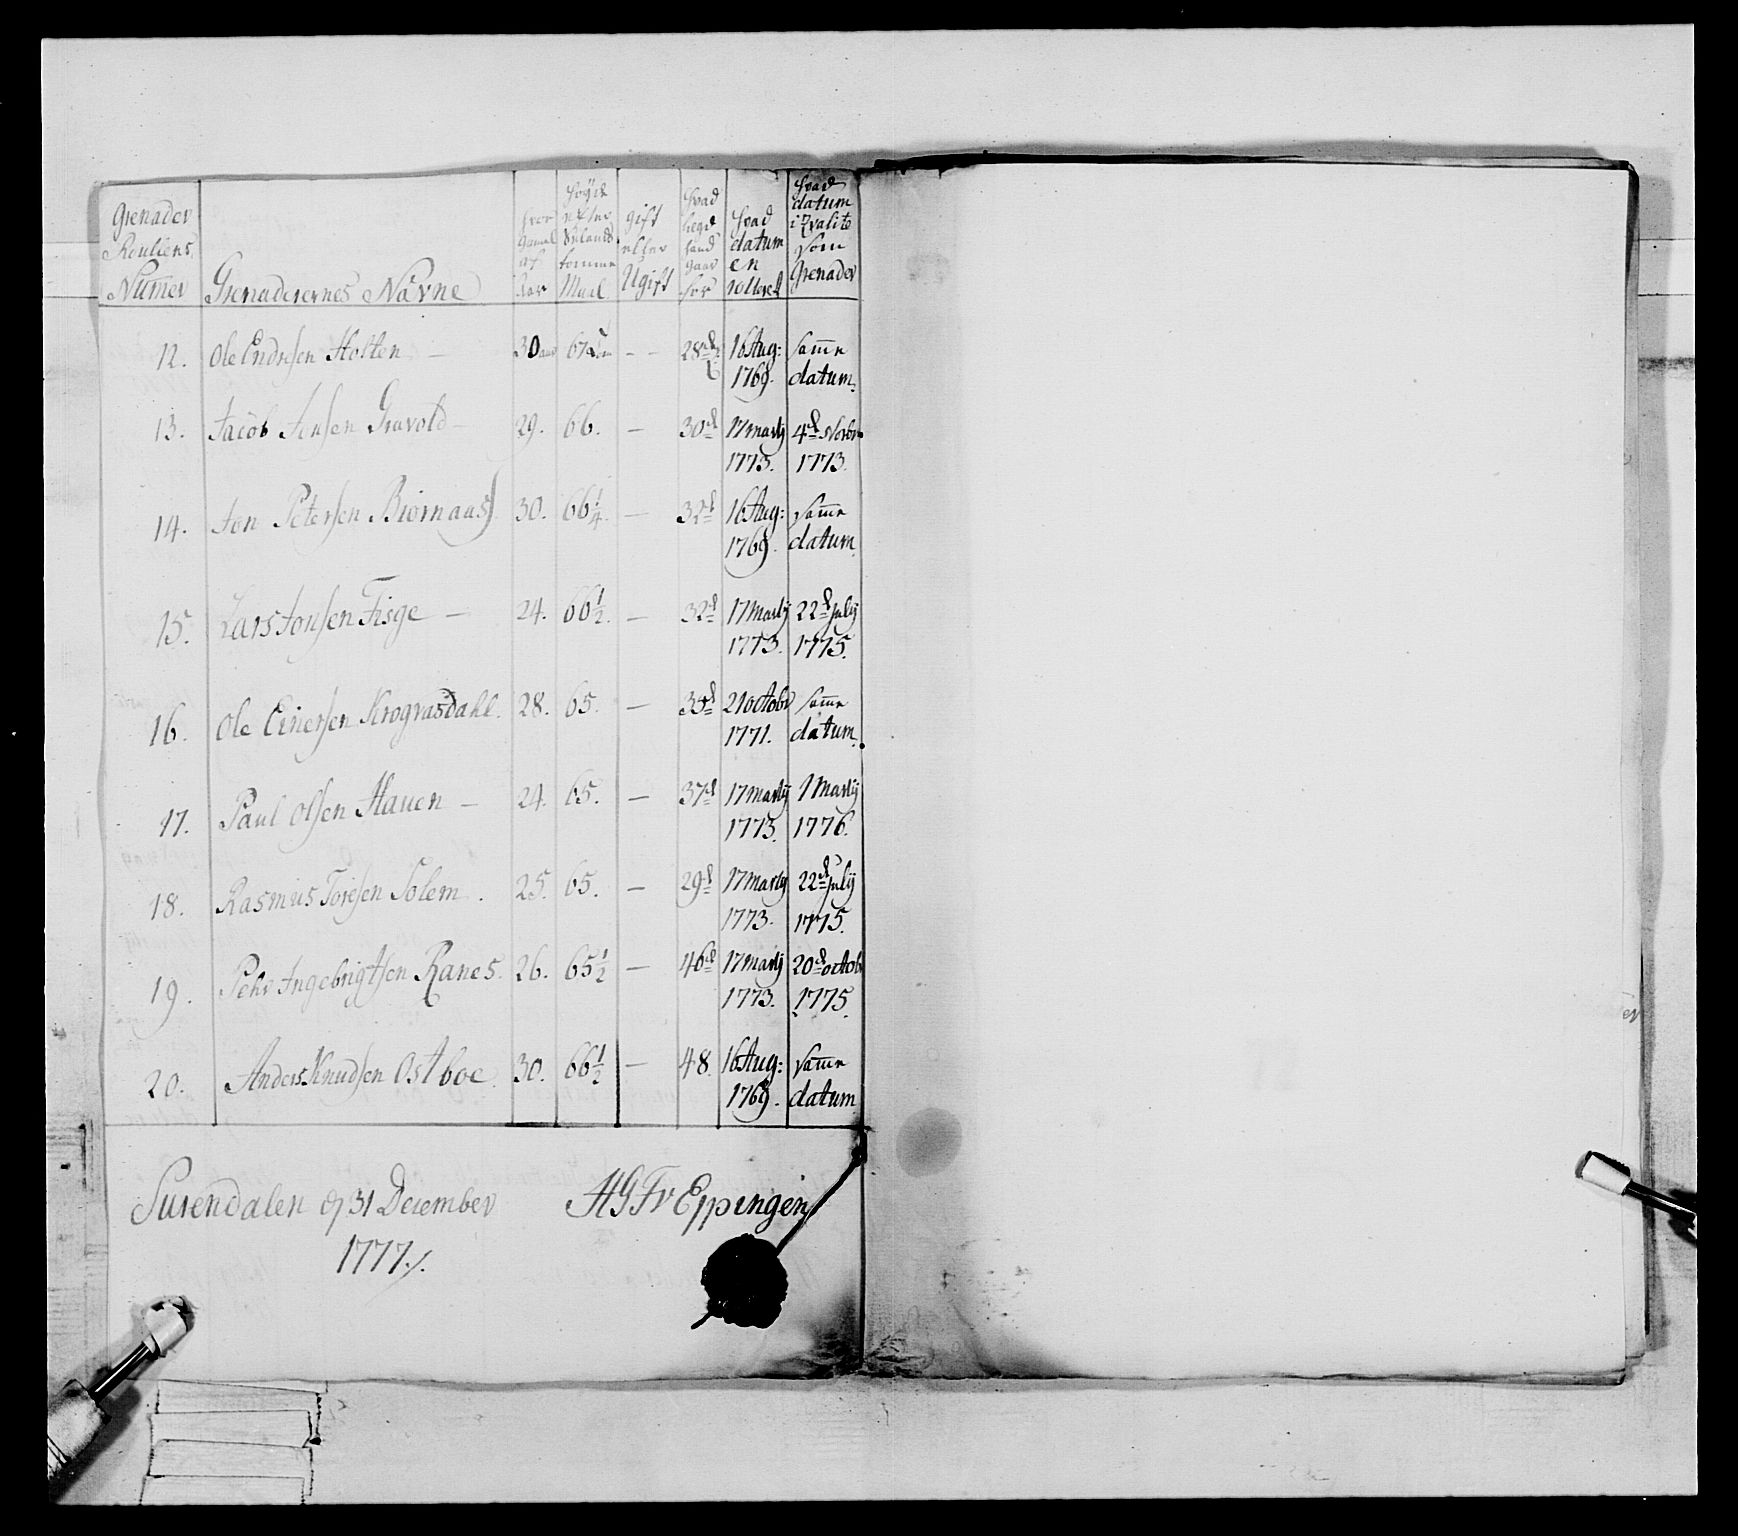 Grenader Roullens Numer | Grenaderernes Navne | hvor gamel af Aar | høyde efter Siælands tomme Maal | gift eller Ugift | hvad legd hand gaar for | hvad datum en rolleret | hvad datum i Qvalite som Grenader
12. Ole Endresen Holten — 30 aar 67 tom — 28de 16 Aug: 1769. samme datum.
13. Jacob Jonsen Gravold — 29. 66. — 30d 17 martij 1773. 4d Novbr 1773.
14. Jon Petersen Biørnaas 30. 66 1/4. — 32d 16 Aug: 1769. samme datum.
15. Lars Jonsen Fisge — 24. 66 1/2. — 32d 17 martij 1773. 22d julij 1775.
16. Ole Einersen Krogvasdahl. 28. 65. — 35d 21 octobr 1771. samme datum.
17. Paul Olsen Hauen — 24. 65. — 37d 17 martij 1773. 1 Martij 1776.
18. Rasmus Toresen Solem. 25. 65. — 29d 17 martij 1773. 22d julij 1775.
19. Pehr Ingebrigtsen Ranes. 26. 65 1/2 — 46d 17 martij 1773. 20d octob 1775.
20. Anders Knudsen Ostboe. 30. 66 1/2 — 48. 16 Aug: 1769. samme datum
Surendalen d 31 December
1777./.
HGFv Eppingen